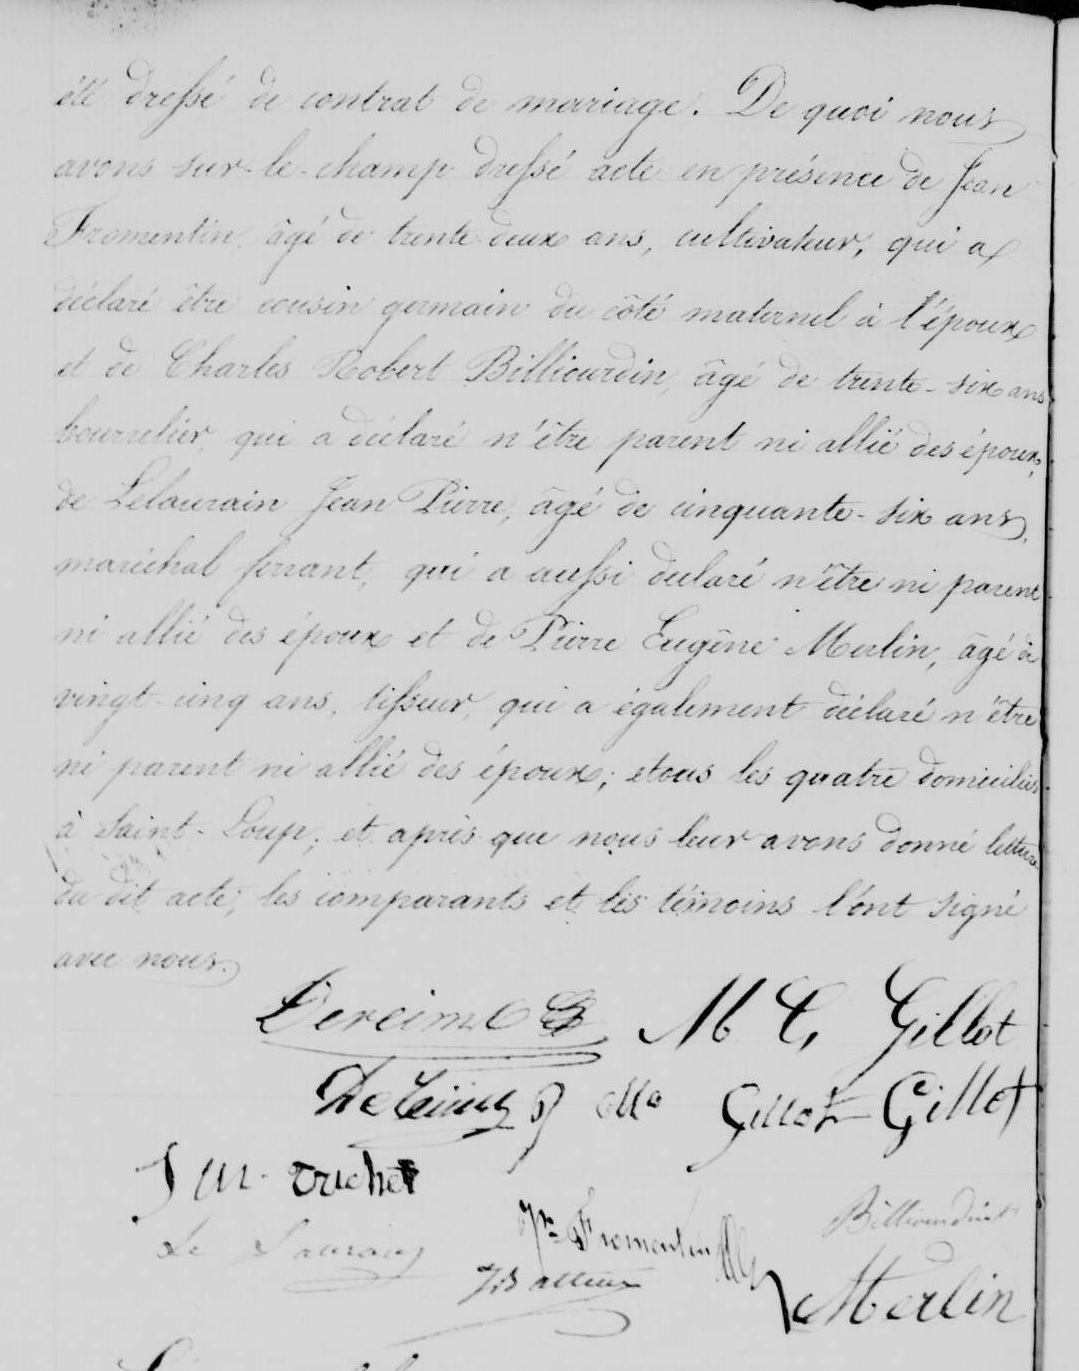 été dressé de contrat de mariage. De quoi nous
avons sur-le-champ dressé acte en présence de Jean
Fromentin, âgé de trente deux ans, cultivateur, qui a
déclaré être cousin germain du côté maternel à l'époux
et de Charles Robert Billiourdin, âgé de trente-six ans
bourrelier, qui a déclaré n'être parent ni allié des époux,
de Lelaurain Jean Pierre, âgé de cinquante-six ans,
maréchal ferrant, qui a aussi declaré n'être ni parent
ni allié des époux et de Pierre Eugène Merlin, âgé de
vingt-cinq ans, tisseur, qui a également déclaré n'être
ni parent ni allié des époux; etous les quatre domiciliés
à Saint-Loup; et après que nous leur avons donné lecture
du dit acte, les comparants et les témoins l'ont signé
avec nous.
M C, Gillot
Gillot Gillet
Fromentin
Merlin